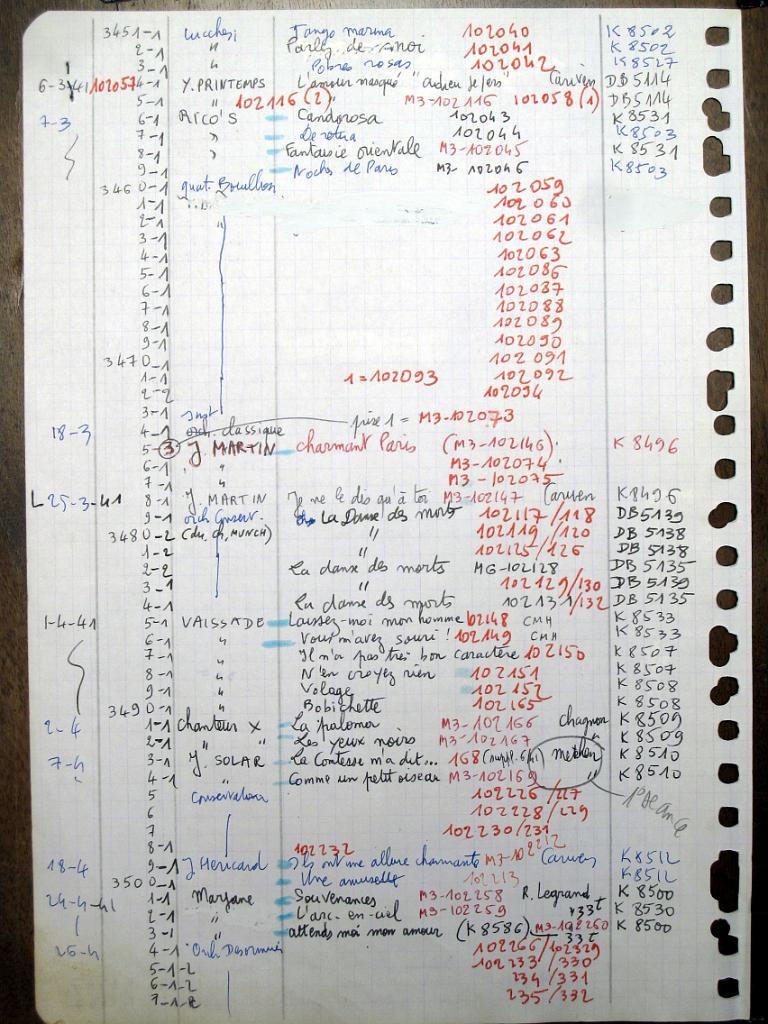 3451-1 Lucchesi Tango marina 102040 K 8502
2-1 " Parlez de moi 102041 K 8502
3-1 " Pobres rosas 102042 K 8527
6-3-41 102057 4-1 Y. PRINTEMPS L'amour masqué "adieu je pars" Cariven DB 5114
5-1 102116 (2) " M3-102116 102058 (1) DB 5114
7-3 6-1 RICO'S Candorosa 102043 K 8531
7-1 " 102044 K 8503
8-1 " Fantaisie orientale M3-102045 K 8531
9-1 Noche de Paris M3-102046 K 8503
3460-1 quat. Bouillon 102059
1-1 102060
2-1 " 102061
3-1 102062
4-1 102063
5-1 102086
6-1 102087
7-1 102088
8-1 102089
9-1 102090
3470-1 102091
1-1 1=102093 102092
2-2 102094
3-1
18-3 4-1 orch. classique prise 1 = M3-102073
5-3 J MARTIN charmant Paris (M3-102146) K 8496
6-1 " M3-102074
7-1 " M3-102075
L 25-3-41 8-1 J. MARTIN Je ne le dis qu'à toi M3-102147 Cariven K 8496
9-1 orch Conserv. La Danse des morts 102117/118 DB 5139
3480-2 (du. ch. MUNCH) " 102119/120 DB 5138
1-2 " 102125/126 DB 5138
2-2 La danse des morts MG-102128 DB 5135
3-1 " 102129/130 DB 5139
4-1 La danse des morts 102131/132 DB 5135
1-4-41 5-1 VAISSADE Laissez-moi mon homme 102148 CMH K 8533
6-1 " Vous m'avez souri! 102149 CMH K 8533
7-1 " Il n'a pas très bon caractère 102150 K 8507
8-1 " N'en croyez rien 102151 K 8507
9-1 " Volage 102152 K 8508
3490-1 " Bobichette 102165 K 8508
2-4 1-1 Chanteur X La paloma M3-102166 Chagnon K 8509
2-1 " " Les yeux noirs M3-102167 " K 8509
7-4 3-1 J. SOLAR La Contesse m'a dit... 168 (suppl. 6/41) Metehen K 8510
4-1 " Comme un petit oiseau M3-102169 " K 8510
5 Conservatoire 102226/227 1e séance
6 102228/229
7 102230/231
8-1 102232
18-4 9-1 J Hericard Ils ont une allure charmante M3-102212 Cariven K 8512
3500-1 Une amusette 102213 K 8512
24-4-41 1-1 Marjane Souvenances M3-102258 R. Legrand K 8500
2-1 " L'arc-en-ciel M3-102259 33t K 8530
3-1 " attends moi mon amour (K 8586) M3-102260 33t K 8500
25-4 4-1 Orch Desormière 102266/102329
5-1-2 102233/330
6-1-2 234/331
7-1-2 235/332